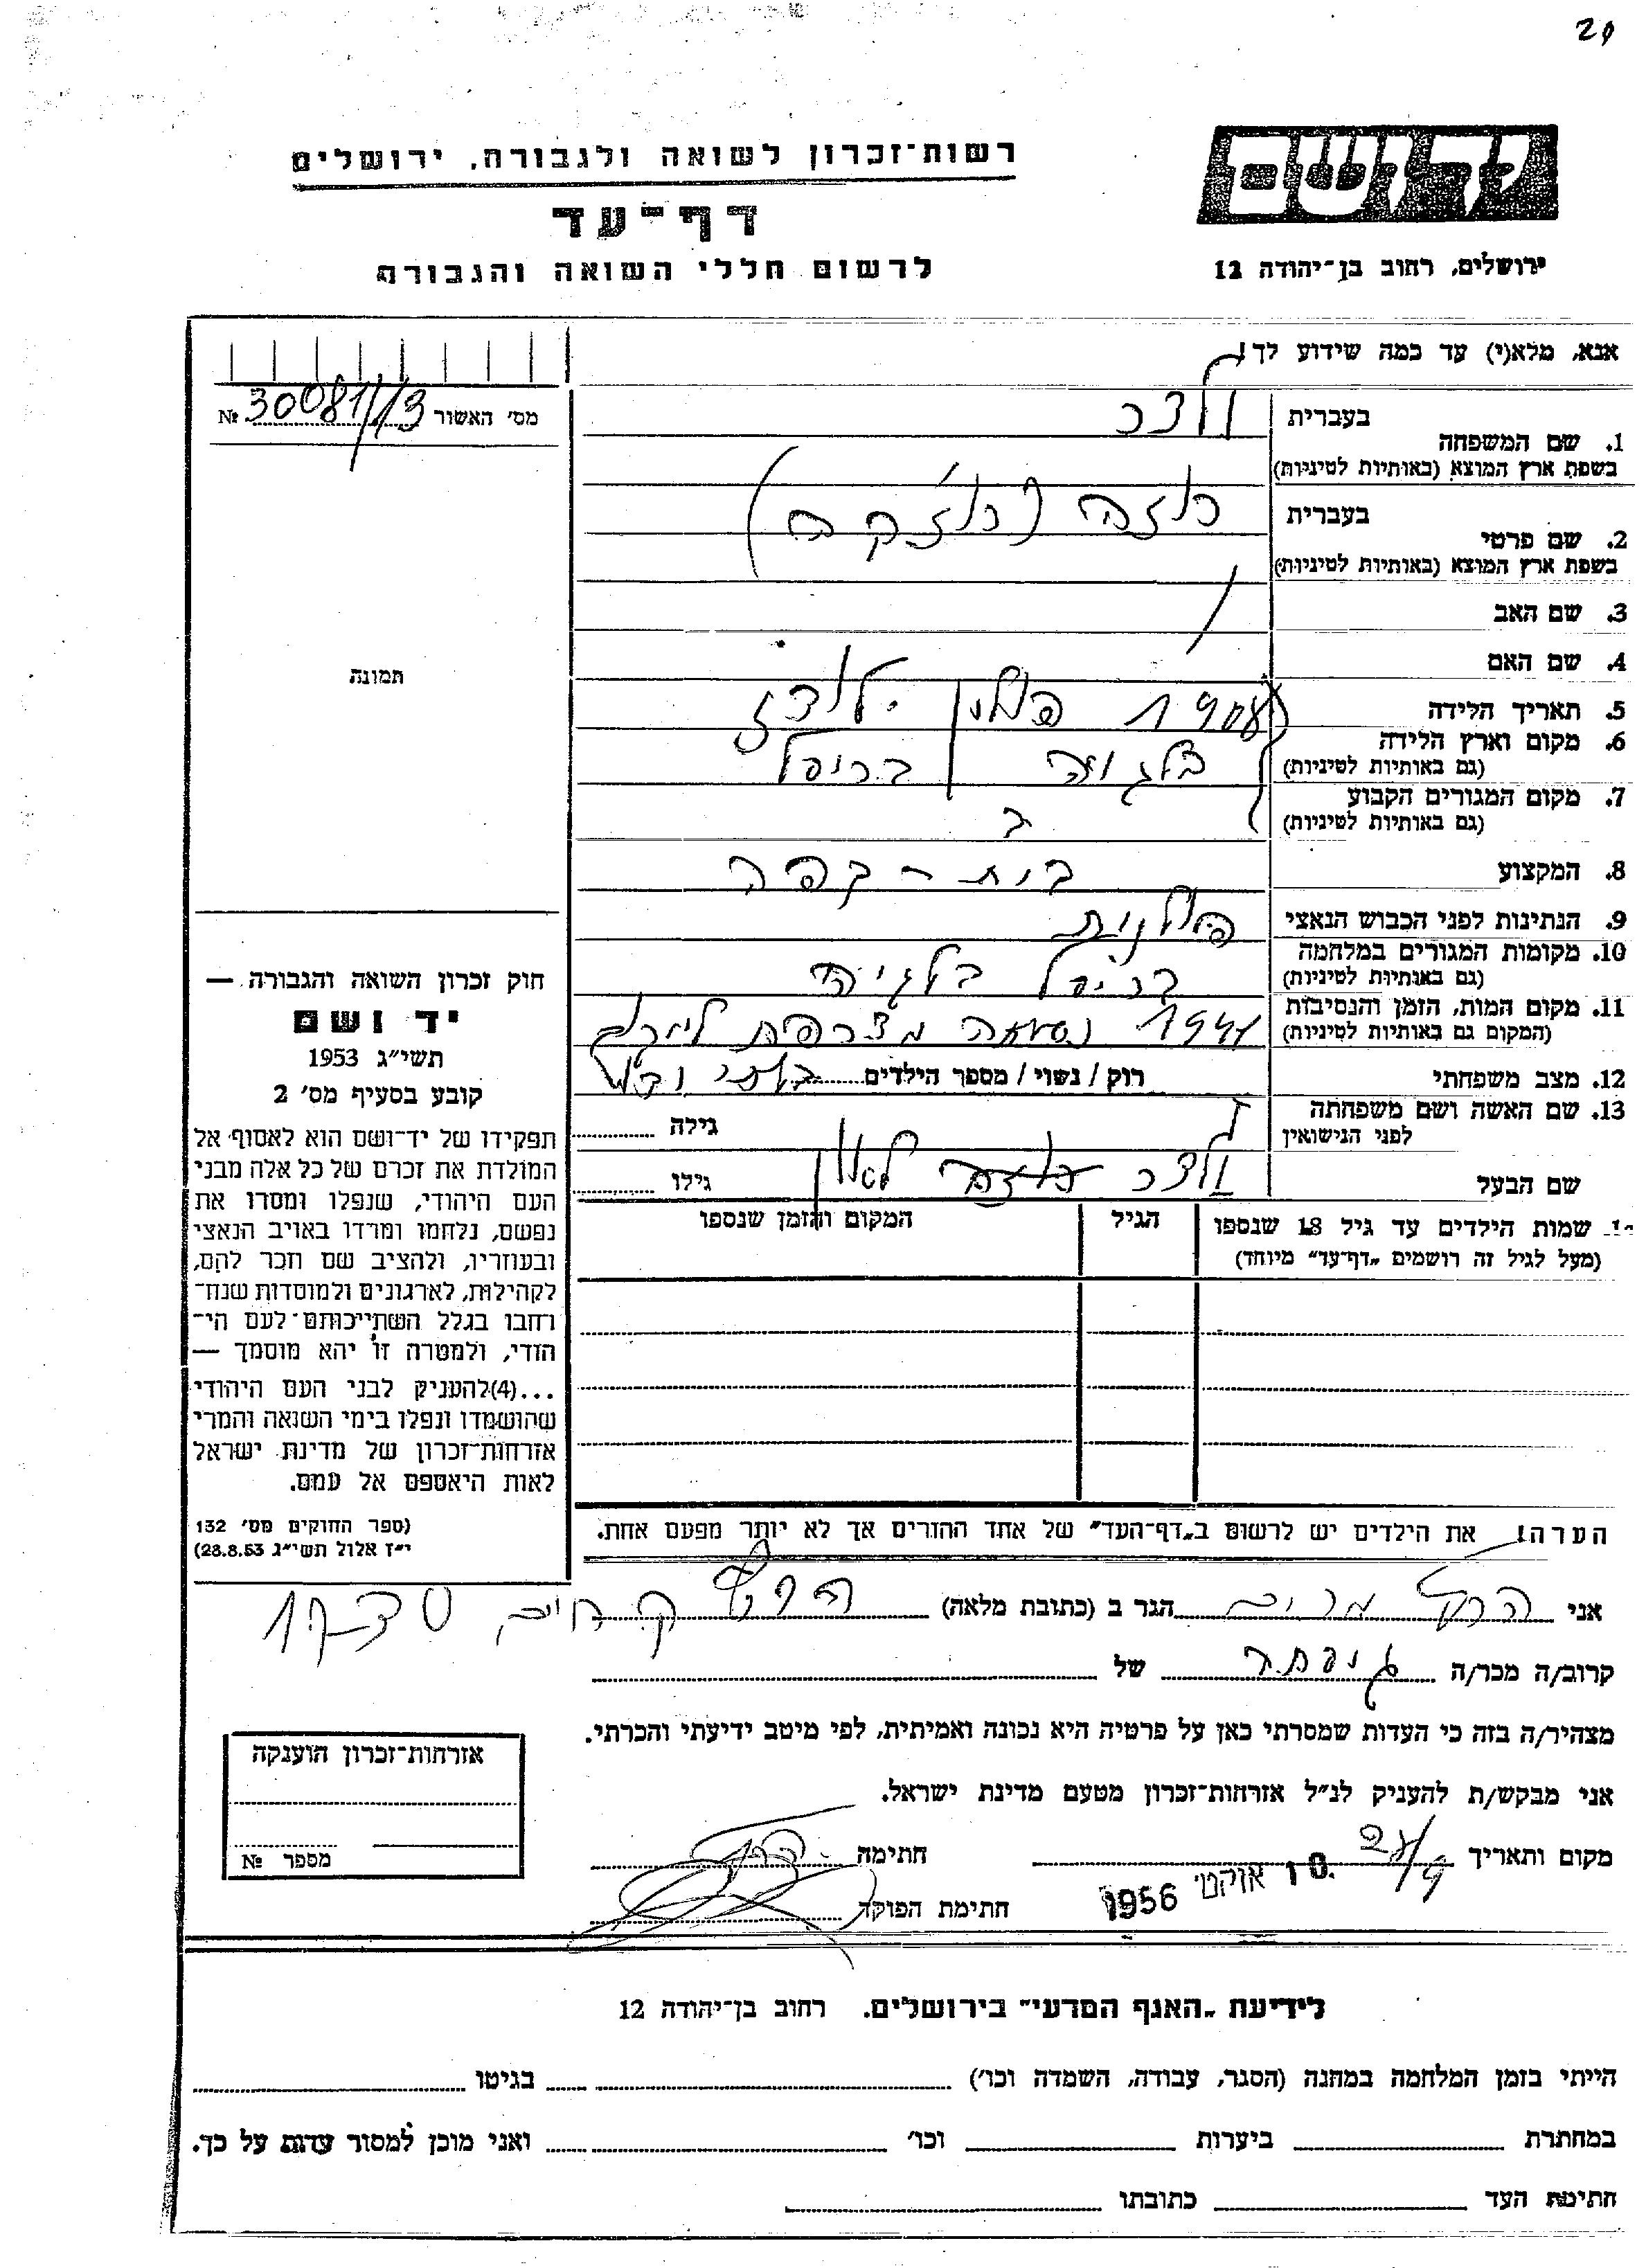 29
יד ושם
רשות־זכרון לשואה ולגבורה, ירושלים
דף־עד
לרשום חללי השואה והגבורה
ירושלים, רחוב בן־יהודה 12
אנא, מלא(י) עד כמה שידוע לך!
מס' האשור 30081/13 №
1. שם המשפחה
בעברית
בשפת ארץ המוצא (באותיות לטיניות)
2. שם פרטי
בעברית רוזה
בשפת ארץ המוצא (באותיות לטיניות)
3. שם האב
4. שם האם
תמונה
5. תאריך הלידה 1908 פולין לודז
6. מקום וארץ הלידה
(גם באותיות לטיניות) בלגיה בריסל
7. מקום המגורים הקבוע
(גם באותיות לטיניות)
8. המקצוע בית-קפה
9. הנתינות לפני הכבוש הנאצי פולנית
10. מקומות המגורים במלחמה
(גם באותיות לטיניות) בריסל בלגיה
11. מקום המות, הזמן והנסיבות
(המקום גם באותיות לטיניות) 1941 נסעה מצרפת
12. מצב משפחתי רוק / נשוי / מספר הילדים
13. שם האשה ושם משפחתה
לפני הנישואין גילה
שם הבעל גילו
שמות הילדים עד גיל 18 שנספו הגיל המקום והזמן שנספו
(מעל לגיל זה רושמים „דף־עד" מיוחד)
חוק זכרון השואה והגבורה —
יד ושם
תשי"ג 1953
קובע בסעיף מס' 2
תפקידו של יד־ושם הוא לאסוף אל
המולדת את זכרם של כל אלה מבני
העם היהודי, שנפלו ומסרו את
נפשם, נלחמו ומרדו באויב הנאצי
ובעוזריו, ולהציב שם וזכר להם,
לקהילות, לארגונים ולמוסדות שנח־
רחבו בגלל השתייכותם לעם הי־
הודי, ולמטרה זו יהא מוסמך —
...(4)להעניק לבני העם היהודי
שהושמדו ונפלו בימי השואה והמרי
אזרחות־זכרון של מדינת ישראל
לאות היאספם אל עמם.
(ספר החוקים מס' 132
י"ז אלול תשי"ג 28.8.53)
הערה! את הילדים יש לרשום ב„דף־העד" של אחד ההורים אך לא יותר מפעם אחת.
אני מרים הגר ב (כתובת מלאה) ק חיים
קרוב/ה מכר/ה גיסתה של
מצהיר/ה בזה כי העדות שמסרתי כאן על פרטיה היא נכונה ואמיתית, לפי מיטב ידיעתי והכרתי.
אני מבקש/ת להעניק לנ"ל אזרחות־זכרון מטעם מדינת ישראל.
אזרחות־זכרון הוענקה
מספר №
מקום ותאריך חתימה
10. אוקט' 1956
חתימת הפוקד
לידיעת „האגף המדעי" בירושלים. רחוב בן־יהודה 12
הייתי בזמן המלחמה במחנה (הסגר, עבודה, השמדה וכו') בגיטו
במחתרת ביערות וכו' ואני מוכן למסור עדות על כך.
חתימת העד כתובתו